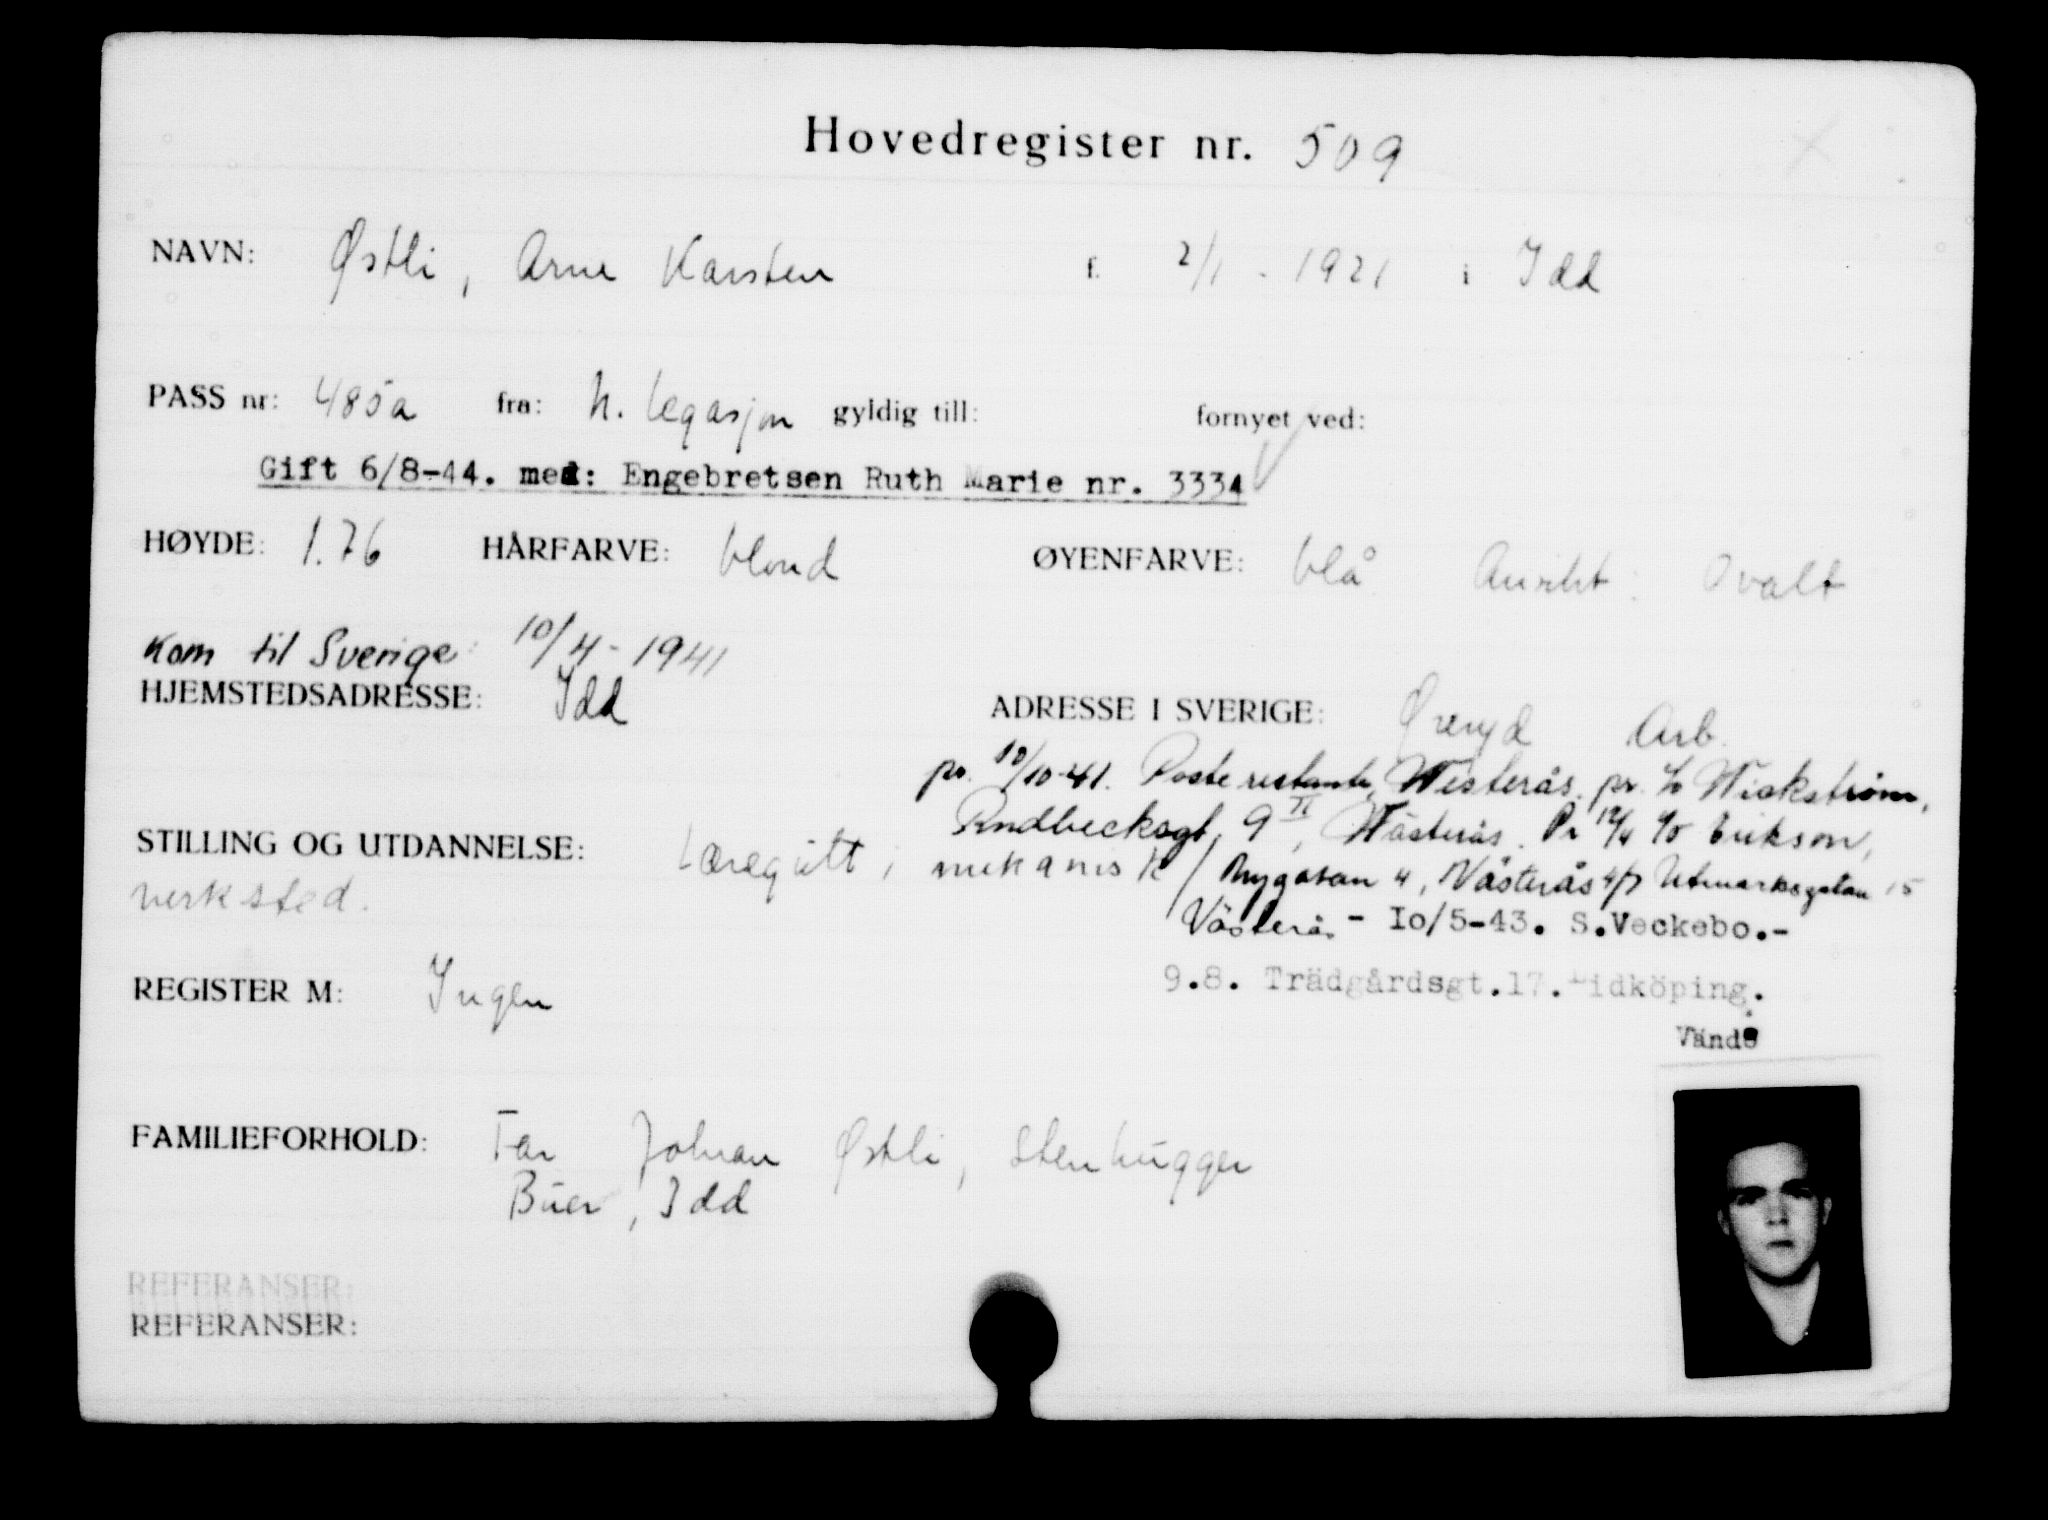 Hovedregister nr. 509
NAVN: Østli, Arne Karsten f. 2/1 - 1921 i Idd
PASS nr: 485a fra: N. Legasjon gyldig till: fornyet ved:
Gift 6/8-44. med: Engebretsen Ruth Marie nr. 3334
HØYDE: 1.76 HÅRFARVE: blond ØYENFARVE: blå Ansikt: Ovalt
Kom til Sverige: 10/4 - 1941
HJEMSTEDSADRESSE: Idd
ADRESSE I SVERIGE: Øreryd Arb.
pr. 10/10-41. Poste restante, Westerås. pr. c/o Wickström,
Rudbecksgt, 9 II, Västerås. Pr 12/4 c/o Erikson,
STILLING OG UTDANNELSE: Læregutt i mekanisk / 4, Västerås 4/7 Utmarksgatan 15
verksted.
Västerås - Io/5-43. S.Veckebo.-
REGISTER M: Ingen
9.8. Trädgårdsgt.17. Lidköping.
Vänd
FAMILIEFORHOLD: Far Johan Østli, Stenhugger
Buer, Idd
REFERANSER:
REFERANSER: